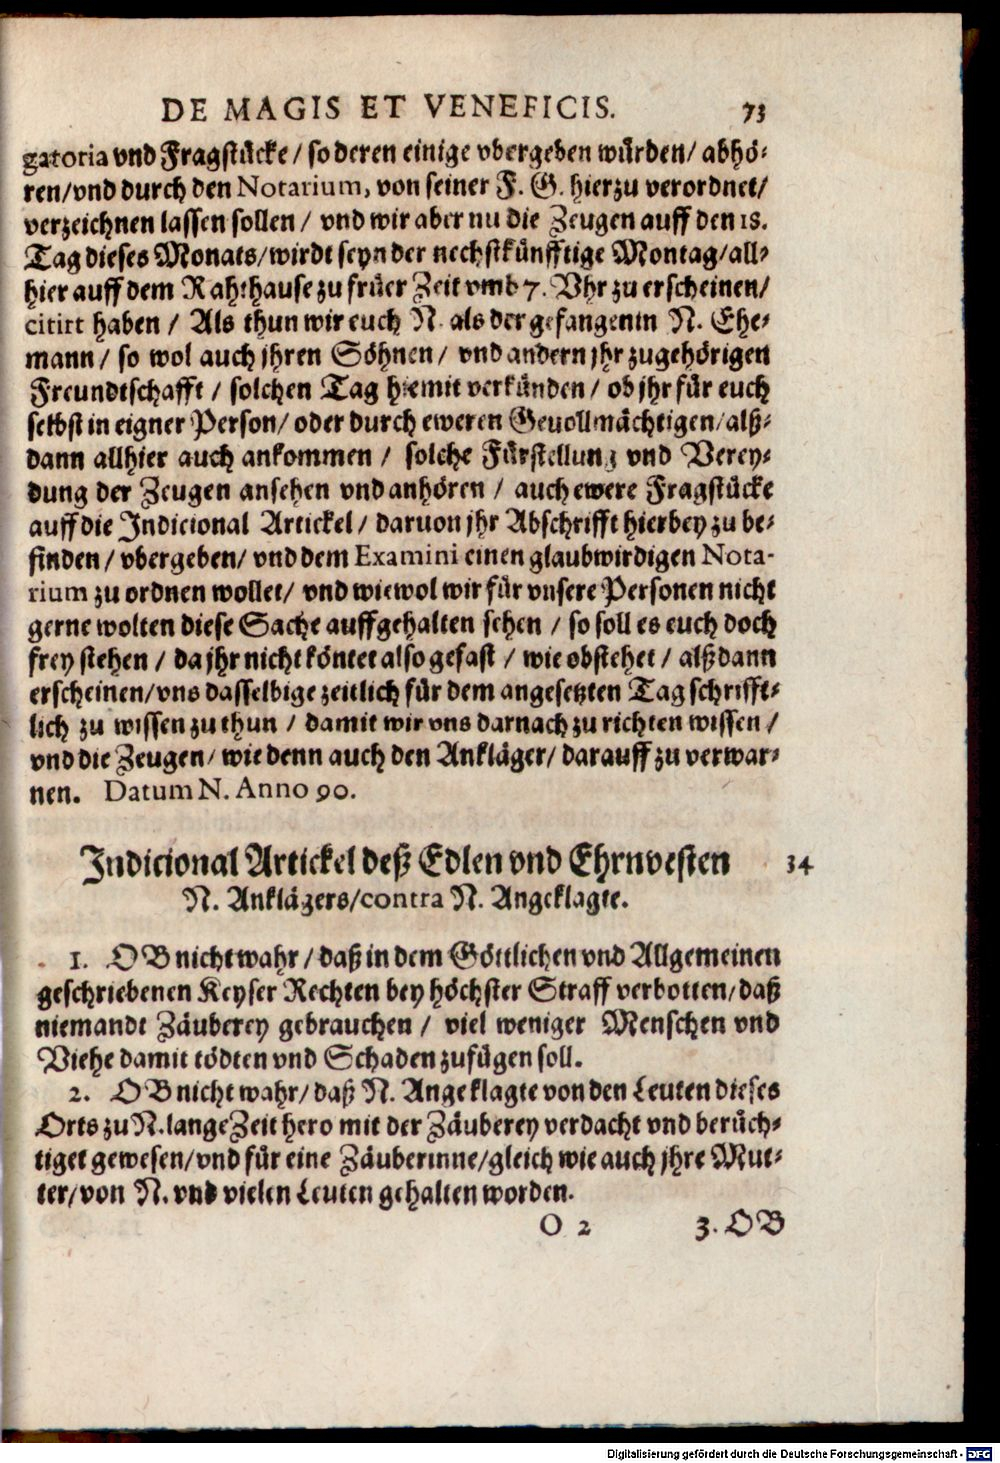 DE MAGIS ET VENEFICIS. 73
gatoria vnd Fragstücke / so deren einige vbergeben würden / abhö-
ren / vnd durch den Notarium, von seiner F. G. hierzu verordnet /
verzeichnen lassen sollen / vnd wir aber nu die Zeugen auff den 18.
Tag dieses Monats / wirdt seyn der nechstkünfftige Montag / all-
hier auff dem Rahthause zu früer Zeit vmb 7. Vhr zu erscheinen /
citirt haben / Als thun wir euch N. als der gefangenin N. Ehe-
mann / so wol auch jhren Söhnen / vnd andern jhr zugehörigen
Freundtschafft / solchen Tag hiemit verkünden / ob jhr für euch
selbst in eigner Person / oder durch eweren Gevollmächtigen / alß-
dann allhier auch ankommen / solche Fürstellung vnd Verey-
dung der Zeugen ansehen vnd anhören / auch ewere Fragstücke
auff die Indicional Artickel / daruon jhr Abschrifft hierbey zu be-
finden / vbergeben / vnd dem Examini einen glaubwirdigen Nota-
rium zu ordnen wollet / vnd wiewol wir für vnsere Personen nicht
gerne wolten diese Sache auffgehalten sehen / so soll es euch doch
frey stehen / da jhr nicht köntet also gefast / wie obstehet / alß dann
erscheinen / vns dasselbige zeitlich für dem angesetzten Tag schrifft-
lich zu wissen zu thun / damit wir vns darnach zu richten wissen /
vnd die Zeugen / wie denn auch den Ankläger / darauff zu verwar-
nen. Datum N. Anno 90.
Indicional Artickel deß Edlen vnd Ehrnvesten 34
N. Anklägers / contra N. Angeklagte.
1. OB nicht wahr / daß in dem Göttlichen vnd Allgemeinen
geschriebenen Keyser Rechten bey höchster Straff verbotten / daß
niemandt Zäuberey gebrauchen / viel weniger Menschen vnd
Viehe damit tödten vnd Schaden zufügen soll.
2. OB nicht wahr / daß N. Angeklagte von den Leuten dieses
Orts zu N. lange Zeit hero mit der Zäuberey verdacht vnd berüch-
tiget gewesen / vnd für eine Zäuberinne / gleich wie auch jhre Mut-
ter / von N. vnd vielen Leuten gehalten worden.
O 2 3. OB
Digitalisierung gefördert durch die Deutsche Forschungsgemeinschaft - DFG